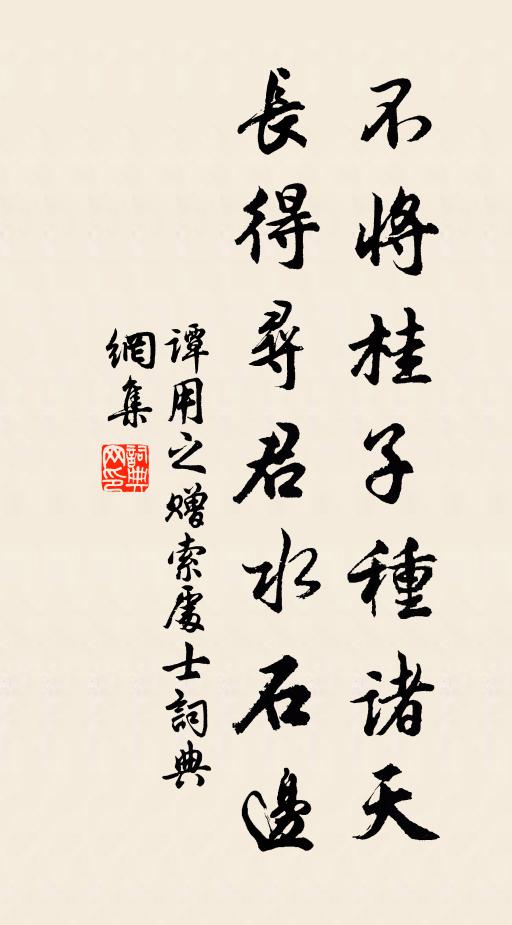 不將桂子種諸天
長得尋君水石邊
譚用之贈索處士詞典
網集
詞典網印